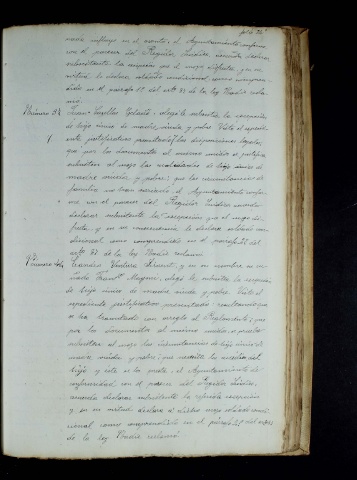 nada influye en el asunto: el Ayuntamiento conforme
con el parecer del Regidor Síndico acuerda declarar
subsistente la excepción que el mozo disfruta y en su
virtud le declara soldado condicional como compren-
dido en el párrafo 1º del artº 87 de la ley. Nadie recla-
mó.
Número 32 Juan alegó le subsistía la excepción
de hijo único de madre viuda y pobre. Visto el expedi-
ente justificativo las disposiciones legales,
que por los documentos el mismo unidos se justifica
subsisten al mozo las de hijo único de
madre viuda y pobre; que las circunstancias de
familia no han variado, el Ayuntamiento confor-
me con el parecer del Regidor Síndico acuerda
declarar subsistente la excepción que el mozo dis-
fruta, y en su consecuencia le declara soldado con-
dicional como comprendido en el párrafo 2º del
artº 87 de la ley. Nadie reclamó.
Número Ventura y en su nombre su
alegó le subsistía la excepción
de hijo único de madre viuda y pobre. Visto el
expediente justificativo presentado: resultando que
se ha tramitado con arreglo al Reglamento; que
por los documentos al mismo unidos se prueba
subsisten al mozo las circunstancias de hijo único de
madre viuda y pobre; que necesita los auxilios del
hijo y este se los presta, el Ayuntamiento de
conformidad con el parecer del Regidor Síndico,
acuerda declarar subsistente la referida excepción
y en su virtud declara a dicho mozo soldado condi-
cional como comprendido en el párrafo 2º del artº 87
de la ley. Nadie reclamó.